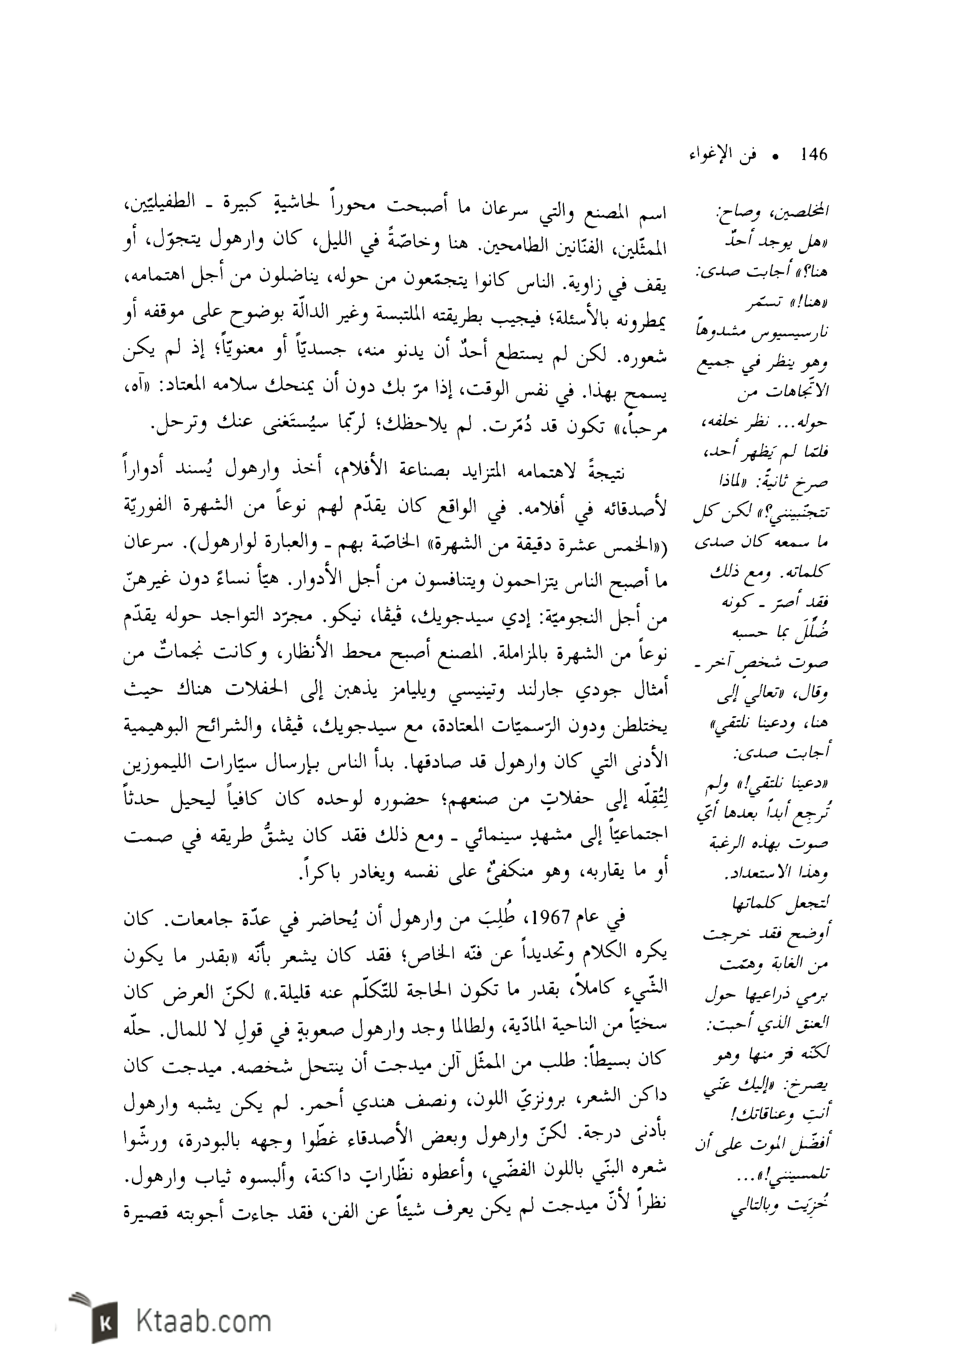 146 • فن الإغواء
المخلصين، وصاح:
«هل يوجد أحدٌ
هنا؟» أجابت صدى:
«هنا!» تسمّر
نارسيسيوس مشدوهاً
وهو ينظر في جميع
الاتّجاهات من
حوله... نظر خلفه،
فلمّا لم يَظهر أحد،
صرخ ثانيةً: «لماذا
تتجنّبينني؟» لكن كل
ما سمعه كان صدى
كلماته. ومع ذلك
فقد أصرّ ـ كونه
ضُلِّلَ بما حسبه
صوت شخصٍ آخر ـ
وقال، «تعالي إلى
هنا، ودعينا نلتقي»
أجابت صدى:
«دعينا نلتقي!» ولم
تُرجِع أبداً بعدها أيّ
صوت بهذه الرغبة
وهذا الاستعداد.
لتجعل كلماتها
أوضح فقد خرجت
من الغابة وهمّت
برمي ذراعيها حول
العنق الذي أحبت:
لكنّه فرّ منها وهو
يصرخ: «إليك عنّي
أنتِ وعناقاتك!
أفضّل الموت على أن
تلمسينني!»...
خُزِيَت وبالتالي
اسم المصنع والتي سرعان ما أصبحت محوراً لحاشيةٍ كبيرة ـ الطفيليّين،
الممثّلين، الفنّانين الطامحين. هنا وخاصّةً في الليل، كان وارهول يتجوّل، أو
يقف في زاوية. الناس كانوا يتجمّعون من حوله، يناضلون من أجل اهتمامه،
يمطرونه بالأسئلة؛ فيجيب بطريقته الملتبسة وغير الدالّة بوضوح على موقفه أو
شعوره. لكن لم يستطع أحدٌ أن يدنو منه، جسديّاً أو معنويّاً؛ إذ لم يكن
يسمح بهذا. في نفس الوقت، إذا مرّ بك دون أن يمنحك سلامه المعتاد: «آه،
مرحباً،» تكون قد دُمّرت. لم يلاحظك؛ لربّما سيُستَغنى عنك وترحل.
نتيجةً لاهتمامه المتزايد بصناعة الأفلام، أخذ وارهول يُسند أدواراً
لأصدقائه في أفلامه. في الواقع كان يقدّم لهم نوعاً من الشهرة الفوريّة
(«الخمس عشرة دقيقة من الشهرة» الخاصّة بهم ـ والعبارة لوارهول). سرعان
ما أصبح الناس يتزاحمون ويتنافسون من أجل الأدوار. هيّأ نساءً دون غيرهنّ
من أجل النجوميّة: إدي سيدجويك، ڤيڤا، نيكو. مجرّد التواجد حوله يقدّم
نوعاً من الشهرة بالمزاملة. المصنع أصبح محط الأنظار، وكانت نجماتٌ من
أمثال جودي جارلند وتينيسي ويليامز يذهبن إلى الحفلات هناك حيث
يختلطن ودون الرّسميّات المعتادة، مع سيدجويك، ڤيڤا، والشرائح البوهيمية
الأدنى التي كان وارهول قد صادقها. بدأ الناس بإرسال سيّارات الليموزين
لِتُقِلّه إلى حفلاتٍ من صنعهم؛ حضوره لوحده كان كافياً ليحيل حدثاً
اجتماعيّاً إلى مشهدٍ سينمائي ـ ومع ذلك فقد كان يشقُّ طريقه في صمت
أو ما يقاربه، وهو منكفئٌ على نفسه ويغادر باكراً.
في عام 1967، طُلِبَ من وارهول أن يُحاضر في عدّة جامعات. كان
يكره الكلام وتحديداً عن فنّه الخاص؛ فقد كان يشعر بأنّه «بقدر ما يكون
الشّيء كاملاً، بقدر ما تكون الحاجة للتّكلّم عنه قليلة.» لكنّ العرض كان
سخيّاً من الناحية المادّية، ولطالما وجد وارهول صعوبةٍ في قولِ لا للمال. حلّه
كان بسيطاً: طلب من الممثّل آلن ميدجت أن ينتحل شخصه. ميدجت كان
داكن الشعر، برونزيّ اللون، ونصف هندي أحمر. لم يكن يشبه وارهول
بأدنى درجة. لكنّ وارهول وبعض الأصدقاء غطّوا وجهه بالبودرة، ورشّوا
شعره البنّي باللون الفضّي، وأعطوه نظّاراتٍ داكنة، وألبسوه ثياب وارهول.
نظراً لأنّ ميدجت لم يكن يعرف شيئاً عن الفن، فقد جاءت أجوبته قصيرة
K Ktaab.com